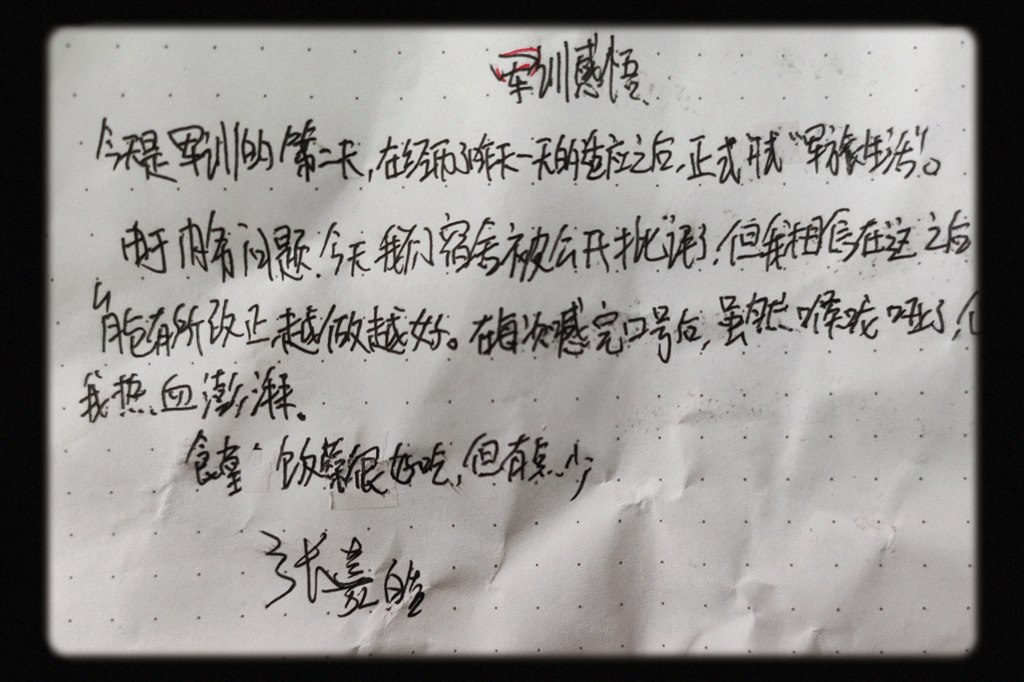 军训感悟
今天是军训的第二天,在经历了昨天一天的适应之后,正式开式“军旅生活”。
由于内务问题,今天我们宿舍被公开批评了,但我相信在这之后
能有所改正,越做越好。在每次喊完口号后,虽然嗓咙哑了,但
我热血澎湃。
食堂饭菜很好吃,但有点少
张嘉皓